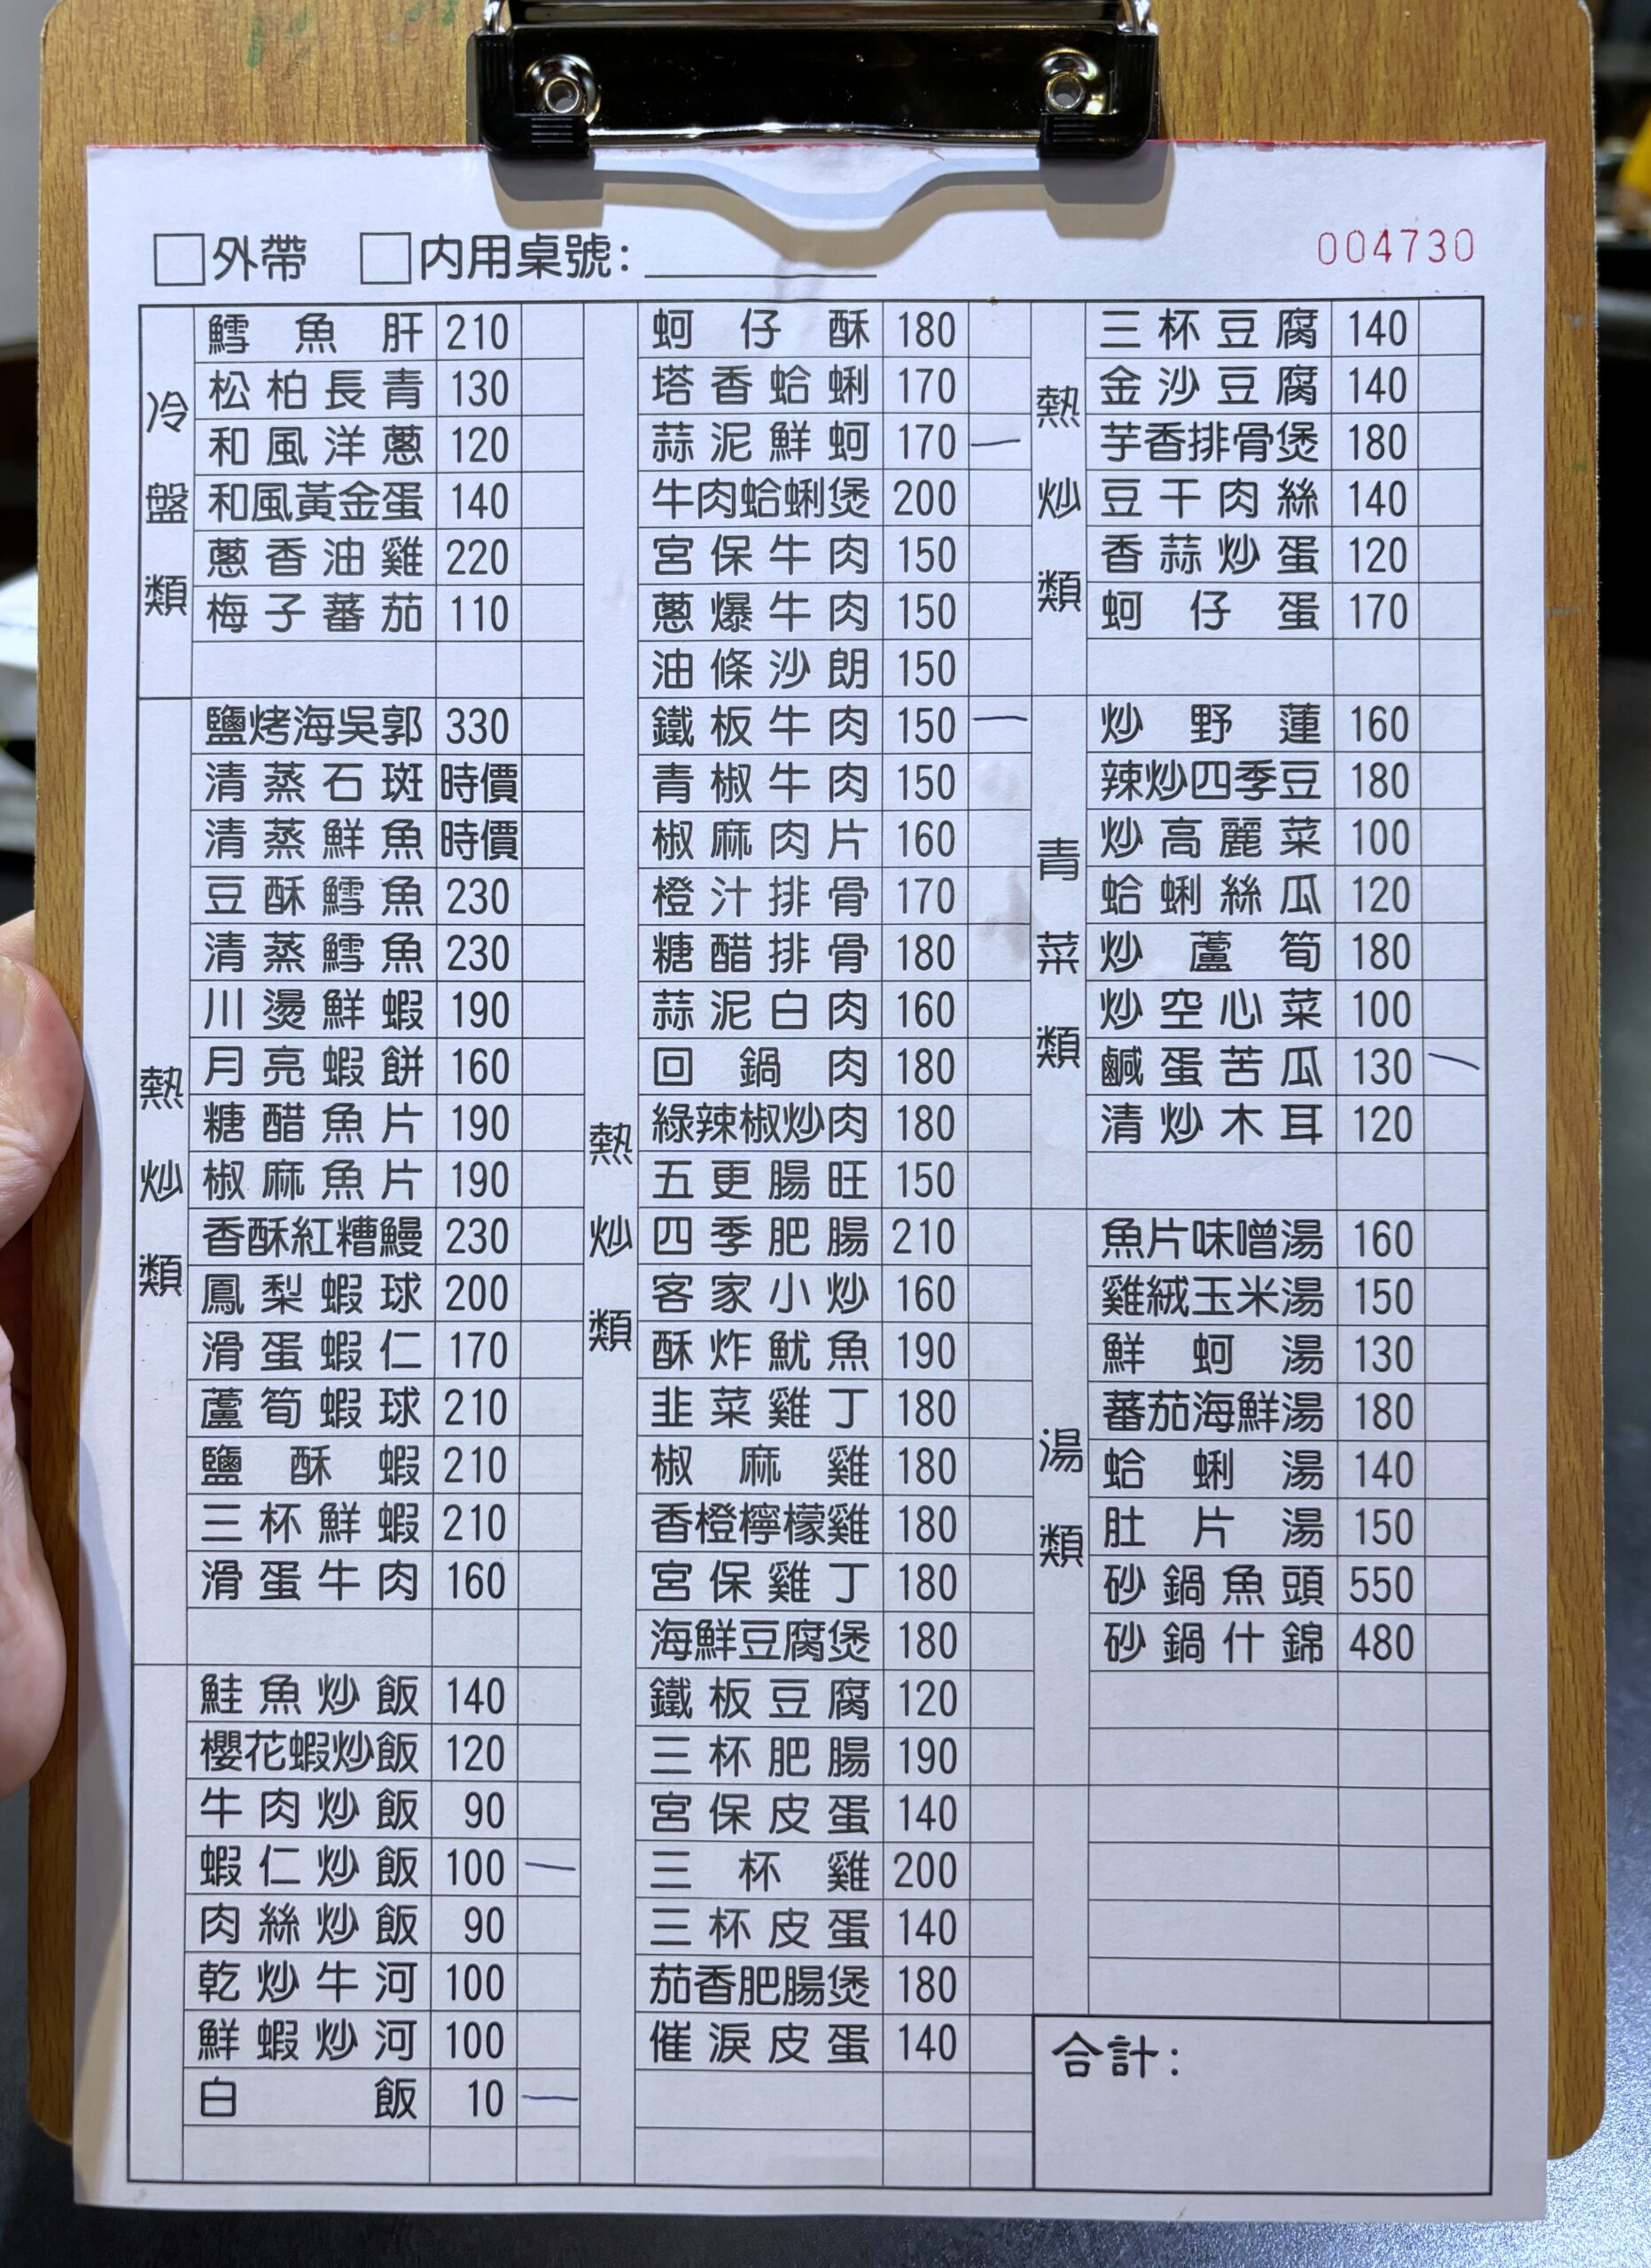 外帶 內用桌號：
004730
冷盤類
鱈魚肝 210
松柏長青 130
和風洋蔥 120
和風黃金蛋 140
蔥香油雞 220
梅子蕃茄 110
熱炒類
鹽烤海吳郭 330
清蒸石斑 時價
清蒸鮮魚 時價
豆酥鱈魚 230
清蒸鱈魚 230
川燙鮮蝦 190
月亮蝦餅 160
糖醋魚片 190
椒麻魚片 190
香酥紅糟鰻 230
鳳梨蝦球 200
滑蛋蝦仁 170
蘆筍蝦球 210
鹽酥蝦 210
三杯鮮蝦 210
滑蛋牛肉 160
鮭魚炒飯 140
櫻花蝦炒飯 120
牛肉炒飯 90
蝦仁炒飯 100 一
肉絲炒飯 90
乾炒牛河 100
鮮蝦炒河 100
白飯 10 一
熱炒類
蚵仔酥 180
塔香蛤蜊 170
蒜泥鮮蚵 170 一
牛肉蛤蜊煲 200
宮保牛肉 150
蔥爆牛肉 150
油條沙朗 150
鐵板牛肉 150 一
青椒牛肉 150
椒麻肉片 160
橙汁排骨 170
糖醋排骨 180
蒜泥白肉 160
回鍋肉 180
綠辣椒炒肉 180
五更腸旺 150
四季肥腸 210
客家小炒 160
酥炸魷魚 190
韭菜雞丁 180
椒麻雞 180
香橙檸檬雞 180
宮保雞丁 180
海鮮豆腐煲 180
鐵板豆腐 120
三杯肥腸 190
宮保皮蛋 140
三杯雞 200
三杯皮蛋 140
茄香肥腸煲 180
催淚皮蛋 140
熱炒類
三杯豆腐 140
金沙豆腐 140
芋香排骨煲 180
豆干肉絲 140
香蒜炒蛋 120
蚵仔蛋 170
青菜類
炒野蓮 160
辣炒四季豆 180
炒高麗菜 100
蛤蜊絲瓜 120
炒蘆筍 180
炒空心菜 100
鹹蛋苦瓜 130 一
清炒木耳 120
湯類
魚片味噌湯 160
雞絨玉米湯 150
鮮蚵湯 130
蕃茄海鮮湯 180
蛤蜊湯 140
肚片湯 150
砂鍋魚頭 550
砂鍋什錦 480
合計：